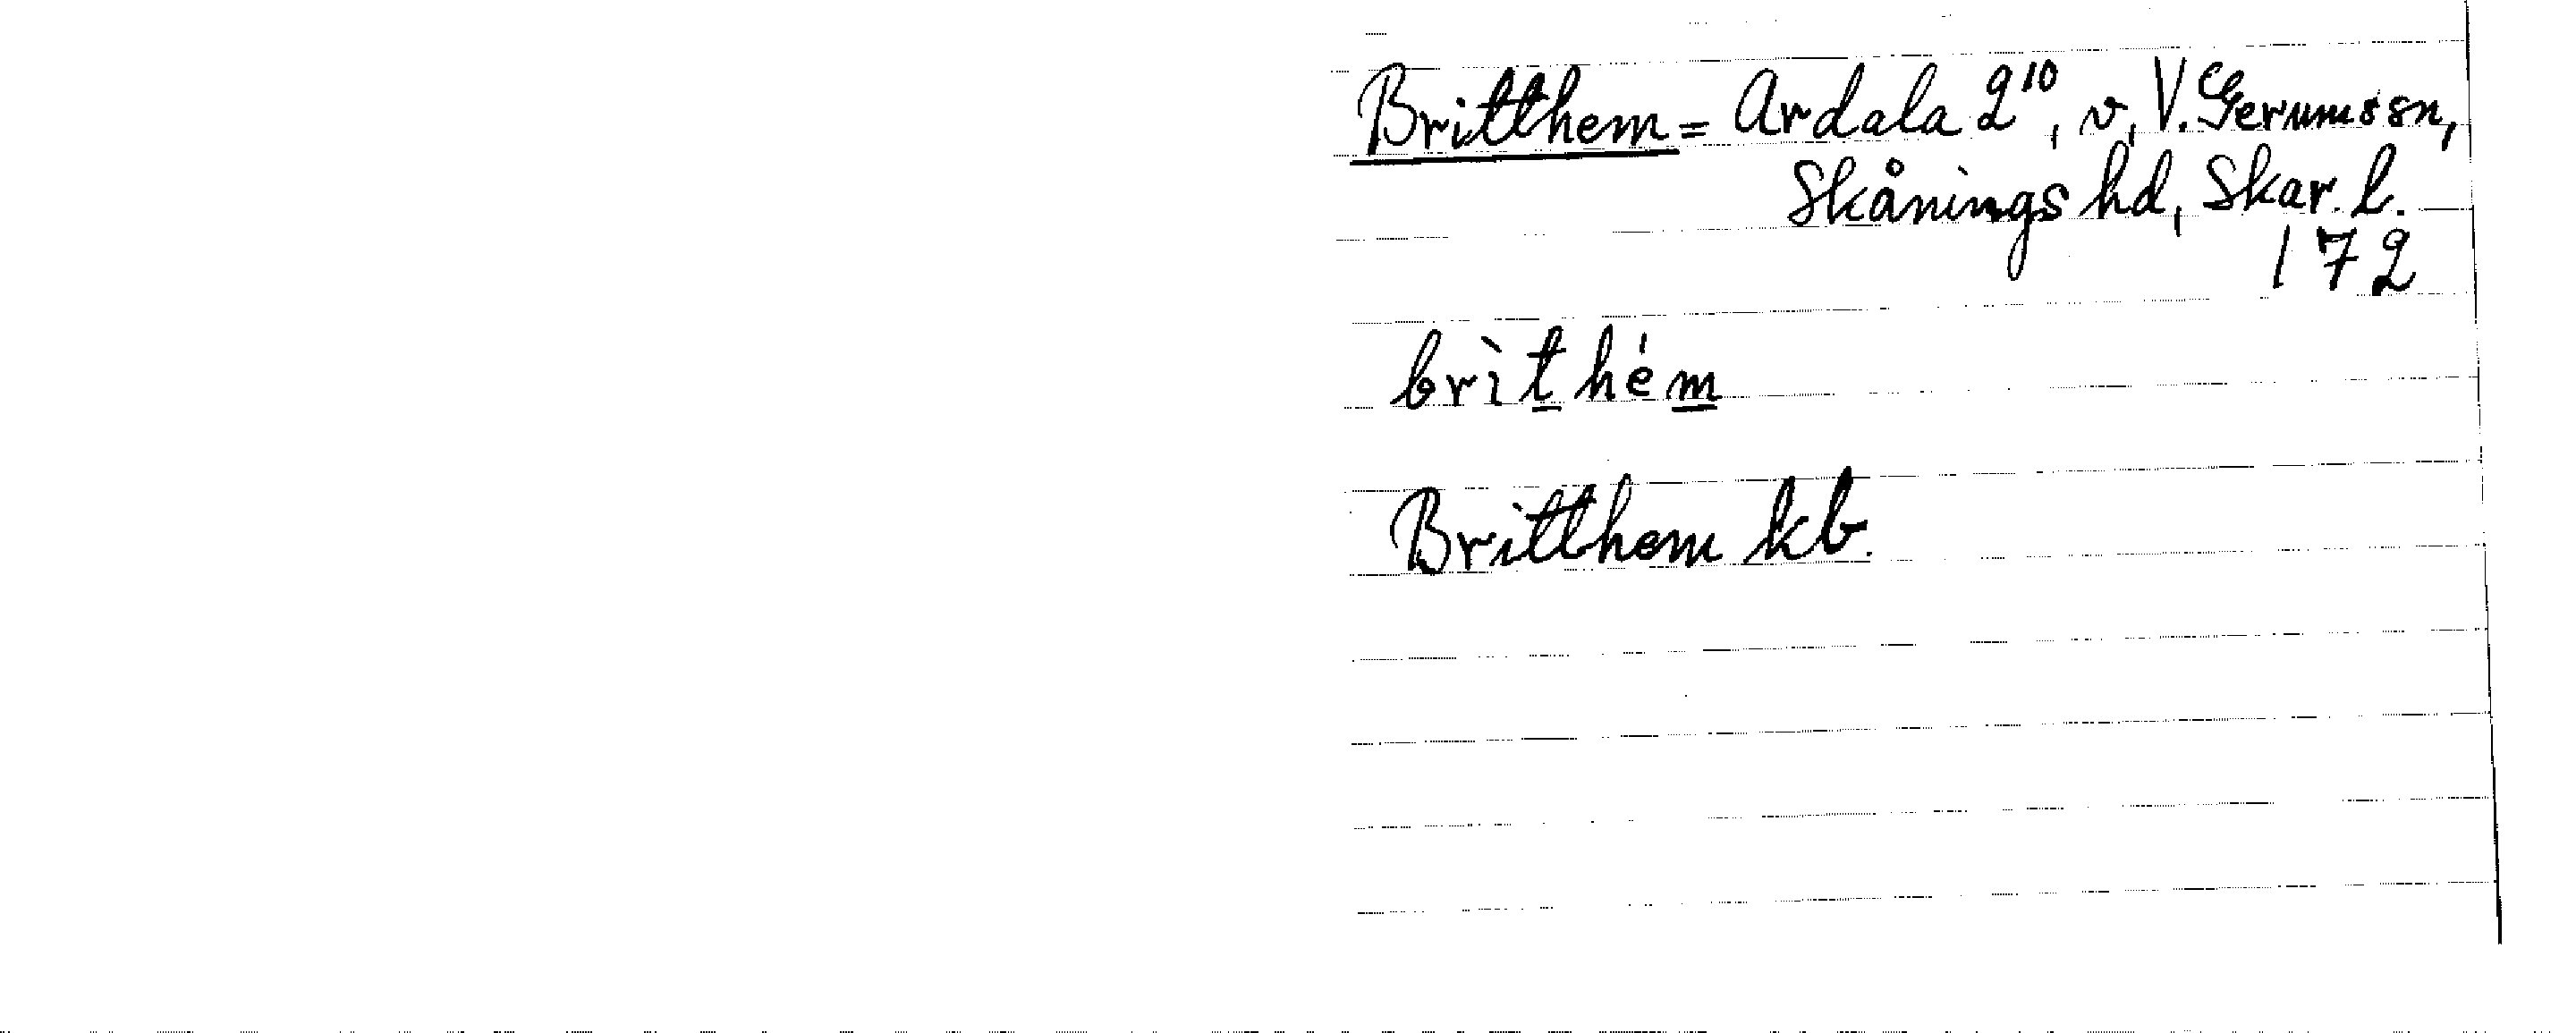 Britthem = Ardala 2¹⁰, v, V. Gerumssn,
Skånings hd, Skar. l.
172
brìt hém
Britthem kb.